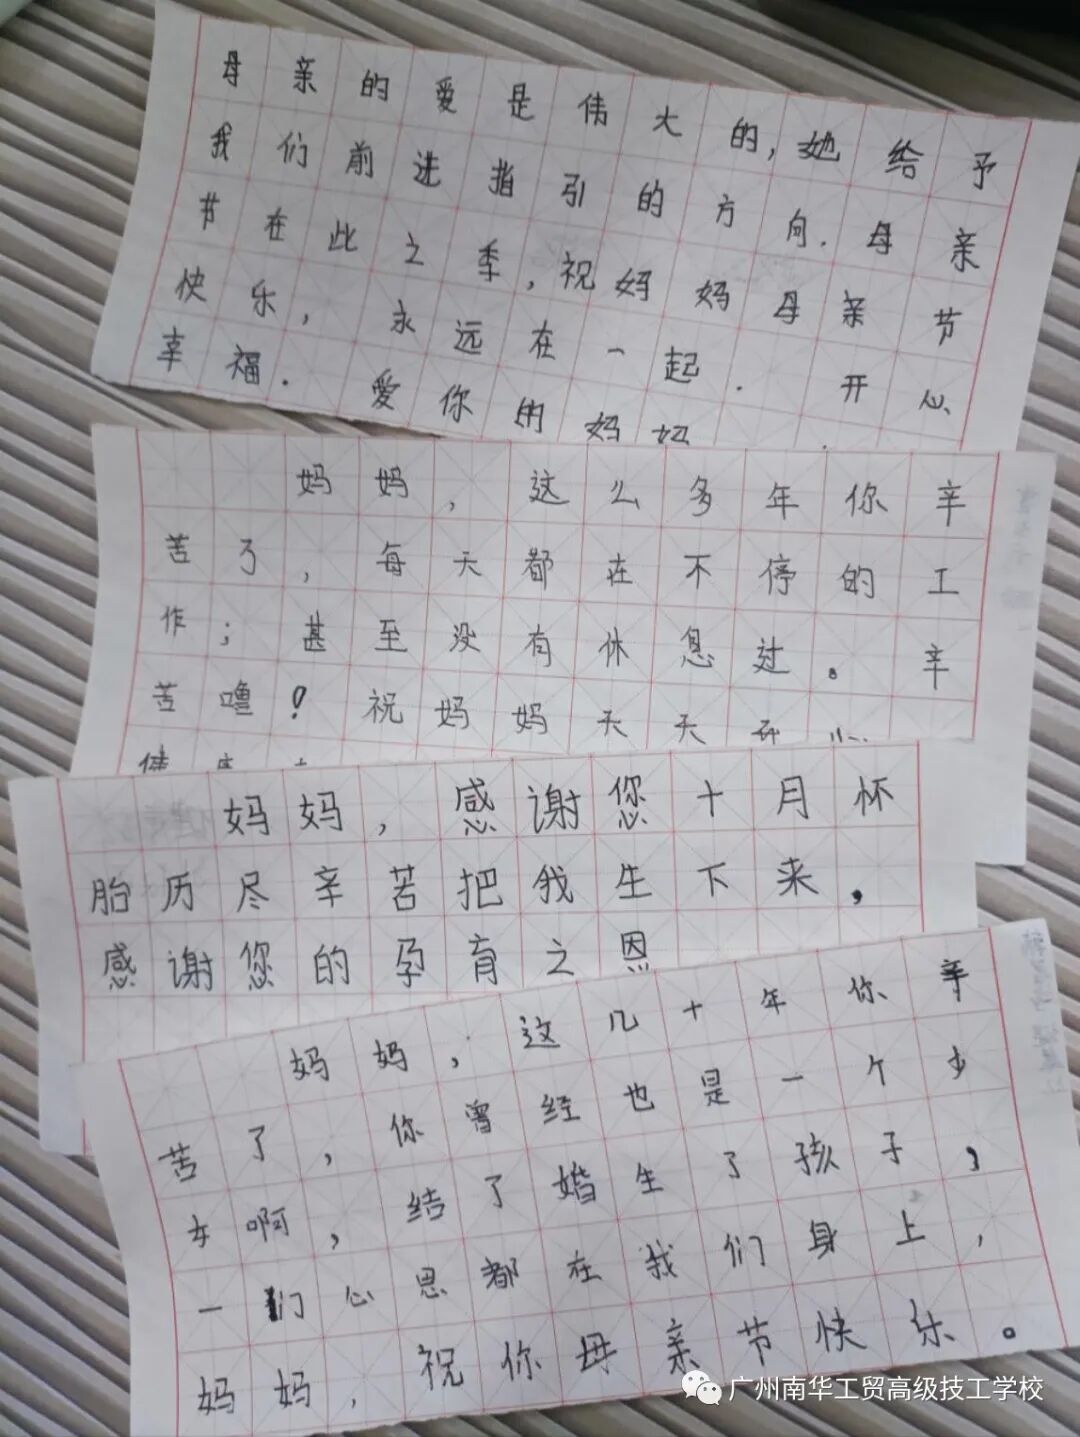 母亲的爱是伟大的,她给予
我们前进指引的方向.母亲
节在此之季,祝妈妈母亲节
快乐,永远在一起.开心
幸福.爱你的妈妈
妈妈,这么多年你辛
苦了,每天都在不停的工
作;甚至没有休息过。辛
苦噜!祝妈妈天天开心
健康
妈妈,感谢您十月怀
胎历尽辛苦把我生下来,
感谢您的孕育之恩
妈妈,这几十年你辛
苦了,你曾经也是一个少
女啊,结了婚生了孩子,
一们心思都在我们身上,
妈妈,祝你母亲节快乐。
广州南华工贸高级技工学校